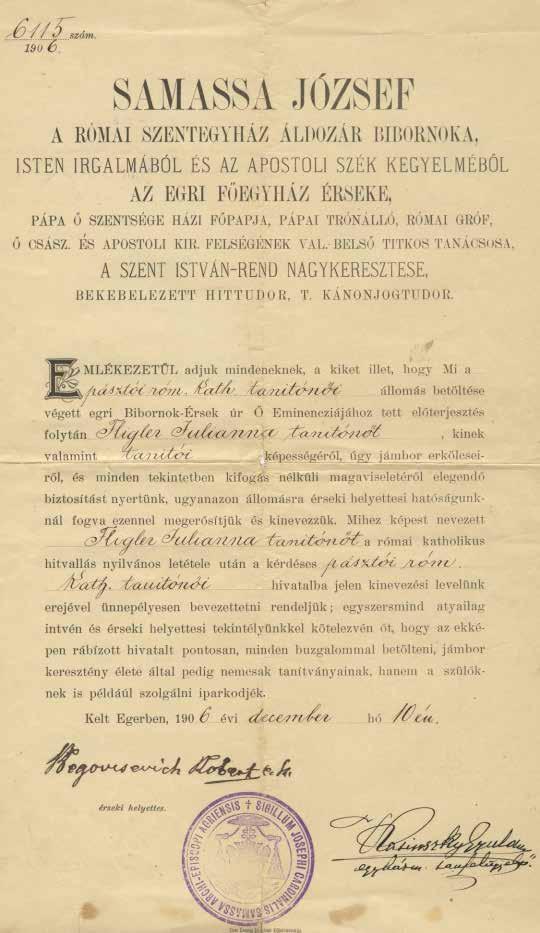 6115 szám.
1906.
SAMASSA JÓZSEF
A RÓMAI SZENTEGYHÁZ ÁLDOZÁR BIBORNOKA,
ISTEN IRGALMÁBÓL ÉS AZ APOSTOLI SZÉK KEGYELMÉBŐL
AZ EGRI FŐEGYHÁZ ÉRSEKE,
PÁPA Ő SZENTSÉGE HÁZI FŐPAPJA, PÁPAI TRÓNÁLLÓ, RÓMAI GRÓF,
Ő CSÁSZ. ÉS APOSTOLI KIR. FELSÉGÉNEK VAL. BELSŐ TITKOS TANÁCSOSA,
A SZENT ISTVÁN-REND NAGYKERESZTESE,
BEKEBELEZETT HITTUDOR, T. KÁNONJOGTUDOR.
EMLÉKEZETŰL adjuk mindeneknek, a kiket illet, hogy Mi a
pásztói róm. Kath. tanitónői állomás betöltése
végett egri Bibornok-Érsek úr Ő Eminencziájához tett előterjesztés
folytán Fligler Julianna tanitónőt, kinek
valamint tanitói képességéről, úgy jámbor erkölcsei-
ről, és minden tekintetben kifogás nélküli magaviseletéről elegendő
biztosítást nyertünk, ugyanazon állomásra érseki helyettesi hatóságunk-
nál fogva ezennel megerősítjük és kinevezzük. Mihez képest nevezett
Fligler Julianna tanitónőt a római katholikus
hitvallás nyilvános letétele után a kérdéses pásztói róm.
Kath. tanitónői hivatalba jelen kinevezési levelünk
erejével ünnepélyesen bevezettetni rendeljük; egyszersmind atyailag
intvén és érseki helyettesi tekintélyünkkel kötelezvén őt, hogy az ekké-
pen rábízott hivatalt pontosan, minden buzgalommal betölteni, jámbor
keresztény élete által pedig nemcsak tanítványainak, hanem a szülők-
nek is például szolgálni iparkodjék.
Kelt Egerben, 1906 évi december hó 10én.
Begovcsevich Robert
érseki helyettes.
SIGILLUM JOSEPHI CARDINALIS SAMASSA ARCHI-EPISCOPI AGRIENSIS